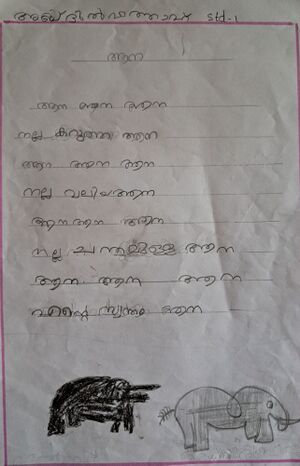 അബ്ദുൽഫത്താഹ് std-1
ആന
ആന ആന ആന
നല്ല കറുത്ത ആന
ആന ആന ആന
നല്ല വലിയ ആന
ആന ആന ആന
നല്ല ചന്തമുള്ള ആന
ആന ആന ആന
സ്വന്തം ആന